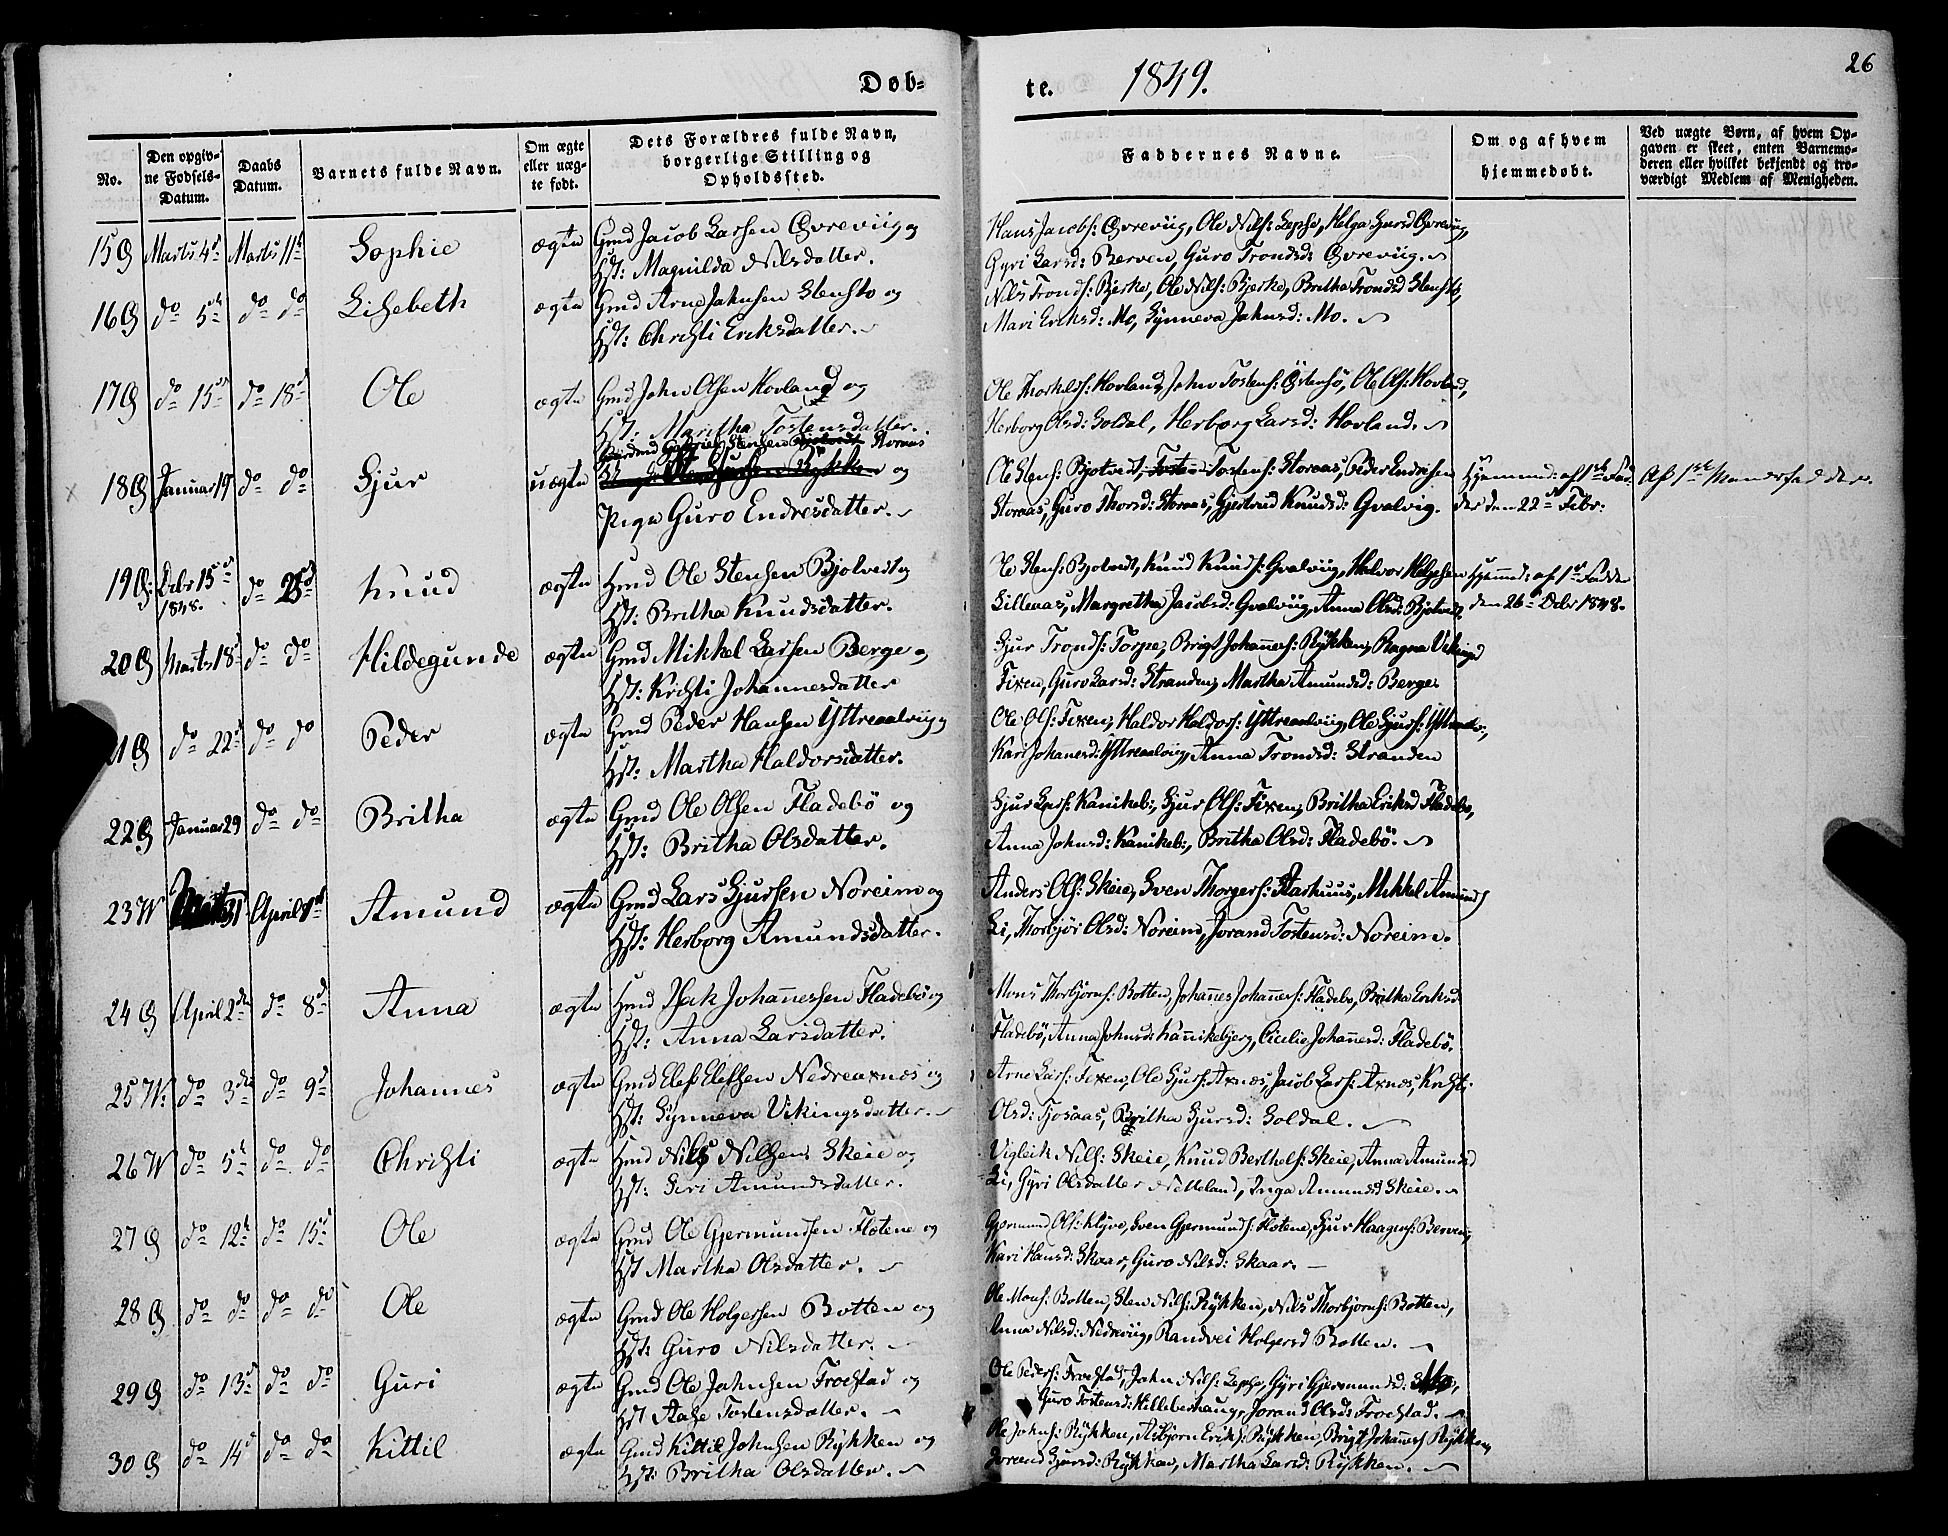 26
Døb-
te. 1849.
No.
Den opgiv-
ne Fødsels-
Datum.
Daabs
Datum.
Barnets fulde Navn.
Om ægte
eller uæg-
te født.
Dets Forældres fulde Navn,
borgerlige Stilling og
Opholdssted.
Faddernes Navne.
Om og af hvem
hjemmedøbt.
Ved uægte Børn, af hvem Op-
gaven er skeet, enten Barnemo-
deren eller hvilket bekjendt og tro-
værdigt Medlem af Menigheden.
15 Marts 4de Marts 11te Sophie ægte Gmd Jacob Larsen Øvreviig og
Hst: Magnilda Nilsdatter.
Hans Jacobs: Øvreviig, Ole Nils: Lepsø, Helga Sjursd Øvreviig,
Gyri Larsd: Berven, Guro Tronds: Øvreviig.
16 do 5te do do Lisebeth ægte Gmd Arne Johnsen Stensto og
Hst: Christi Eriksdatter.
Nils Tronds: Bjerke, Ole Nils: Bjerke, Britha Trondsd Stensto,
Mari Eriksd: Mo, Synneva Johnsd: Mo.
17 do 15de do 18de Ole ægte Gmd John Olsen Hovland og
Hst: Maritha Tostensdatter.
Ole Thorkels: Hovland, John Tostens: Østensø, Ole Ols: Hovland,
Herborg Olsd: Soldal, Herborg Larsd: Hovland.
18 Januar 19 do do Sjur uægte Storaas
og
Pige Guro Endresdatter.
Ole Stens: Bjotvedt, Tosten Tostens: Storaas, Peder Endresen
Storaas, Guro Thorsd: Storaas, Gjertrud Knudsd: Gvalvig.
Hjemmed: af 1ste Fad-
der den 22de Febr:
Af 1ste Mandsfadder.
19 Decbr 15de
1848. do 25de Knud ægte Hmd Ole Stensen Bjolvedt og
Hst: Britha Knudsdatter.
Ole Stens: Bjolvedt, Knud Knuds: Gvalviig, Halvor Helgesen
Lilleaas, Margretha Jacobsd: Gvalviig, Anna Olsd: Bjolvedt.
Hjemmd: af 1ste Fadder
den 26de Decbr 1848.
20 Marts 18de do do Hildegunde ægte Gmd Mikkel Larsen Berge og
Hst: Kristi Johannesdatter
Sjur Tronds: Torpe, Brigt Johannes: Rykken, Ragna Vikingsd
Fixen, Guro Larsd: Stranden, Martha Amundsd: Berge.
do 22de do do Peder ægte Gmd Peder Hansen Yttreaalviig og
Hst: Martha Haldorsdatter.
Ole Ols: Fixen, Haldor Haldors: Yttreaalviig, Ole Sjurs: Yttreaalv:,
Kari Johansd: Yttreaalviig, Anna Trondsd: Stranden
22 Januar 29 do do Britha ægte Gmd Ole Olsen Fladebø og
Hst: Britha Olsdatter.
Sjur Lars: Kanikeb:, Sjur Ols: Fixen, Britha Eriksd Fladebø,
Anna Johnsd: Kanikeb:, Britha Olsd: Fladebø.
23 W 31 April 1ste Amund ægte Gmd Lars Sjursen Noreim og
Hst: Herborg Amundsdatter.
Anders Ols: Skeie, Sven Thorgers: Aarhuus, Mikkel Amunds
Li, Thorbjør Olsd: Noreim, Jorand Tostensd: Noreim.
24 April 2den do 8de Anna ægte Hmd Isak Johannessen Fladebø og
Hst: Anna Larsdatter.
Mons Thorbjørns: Botten, Johannes Johannes: Fladebø, Britha Eriksd
Fladebø, Anna Johnsd: Kannikebjerg, Cicilie Johannesd: Fladebø.
25 W: do 3die do 9de Johannes ægte Gmd Elef Elefsen Nedreaxnæs og
Hst: Synneva Vikingsdatter.
Arne Lars: Fixen, Ole Sjurs: Axnæs, Jacob Lars: Axnæs, Kristi
Olsd: Tjosaas, Britha Sjursd: Soldal.
26 W do 5te do do Christi ægte Hmd Nils Nilsen Skeie og
Hst: Siri Amundsdatter.
Vigleik Nils: Skeie, Knud Berthels: Skeie, Anna Amundsd
Li, Gyri Olsdatter Netteland, Inga Amundsd Skeie.
27 do 12te do 15de Ole ægte Gmd Ole Gjermundsen Flotene og
Hst Martha Olsdatter.
Gjermund Ols: Klyve, Sven Gjermunds: Flotene, Sjur Haagens: Berven,
Kari Hansd: Skaar, Guro Nilsd: Skaar.
28 do do do do Ole ægte Gmd Ole Holgersen Botten og
Hst: Guro Nilsdatter.
Ole Mons: Botten, Sten Nils: Rykken, Nils Thorbjørns: Botten,
Anna Nilsd: Nedreviig, Randvei Holgersd Botten.
29 do 13de do do Guri ægte Gmd Ole Johnsen Froestad og
Hst Aase Tostensdatter.
Ole Peders: Froestad, John Nils: Lepsø, Gyri Gjermundsd: Mo,
Guro Tostensd: Hilleberhaug, Jorand Olsd: Froestad.
30 do 14de do do Kittil ægte Gmd Kittil Johnsen Rykken og
Hst: Britha Olsdatter.
Ole Johns: Rykken, Asbjørn Eriks: Rykken, Brigt Johannes Rykken,
Jorand Sjursd: Rykken, Martha Larsd: Rykken.